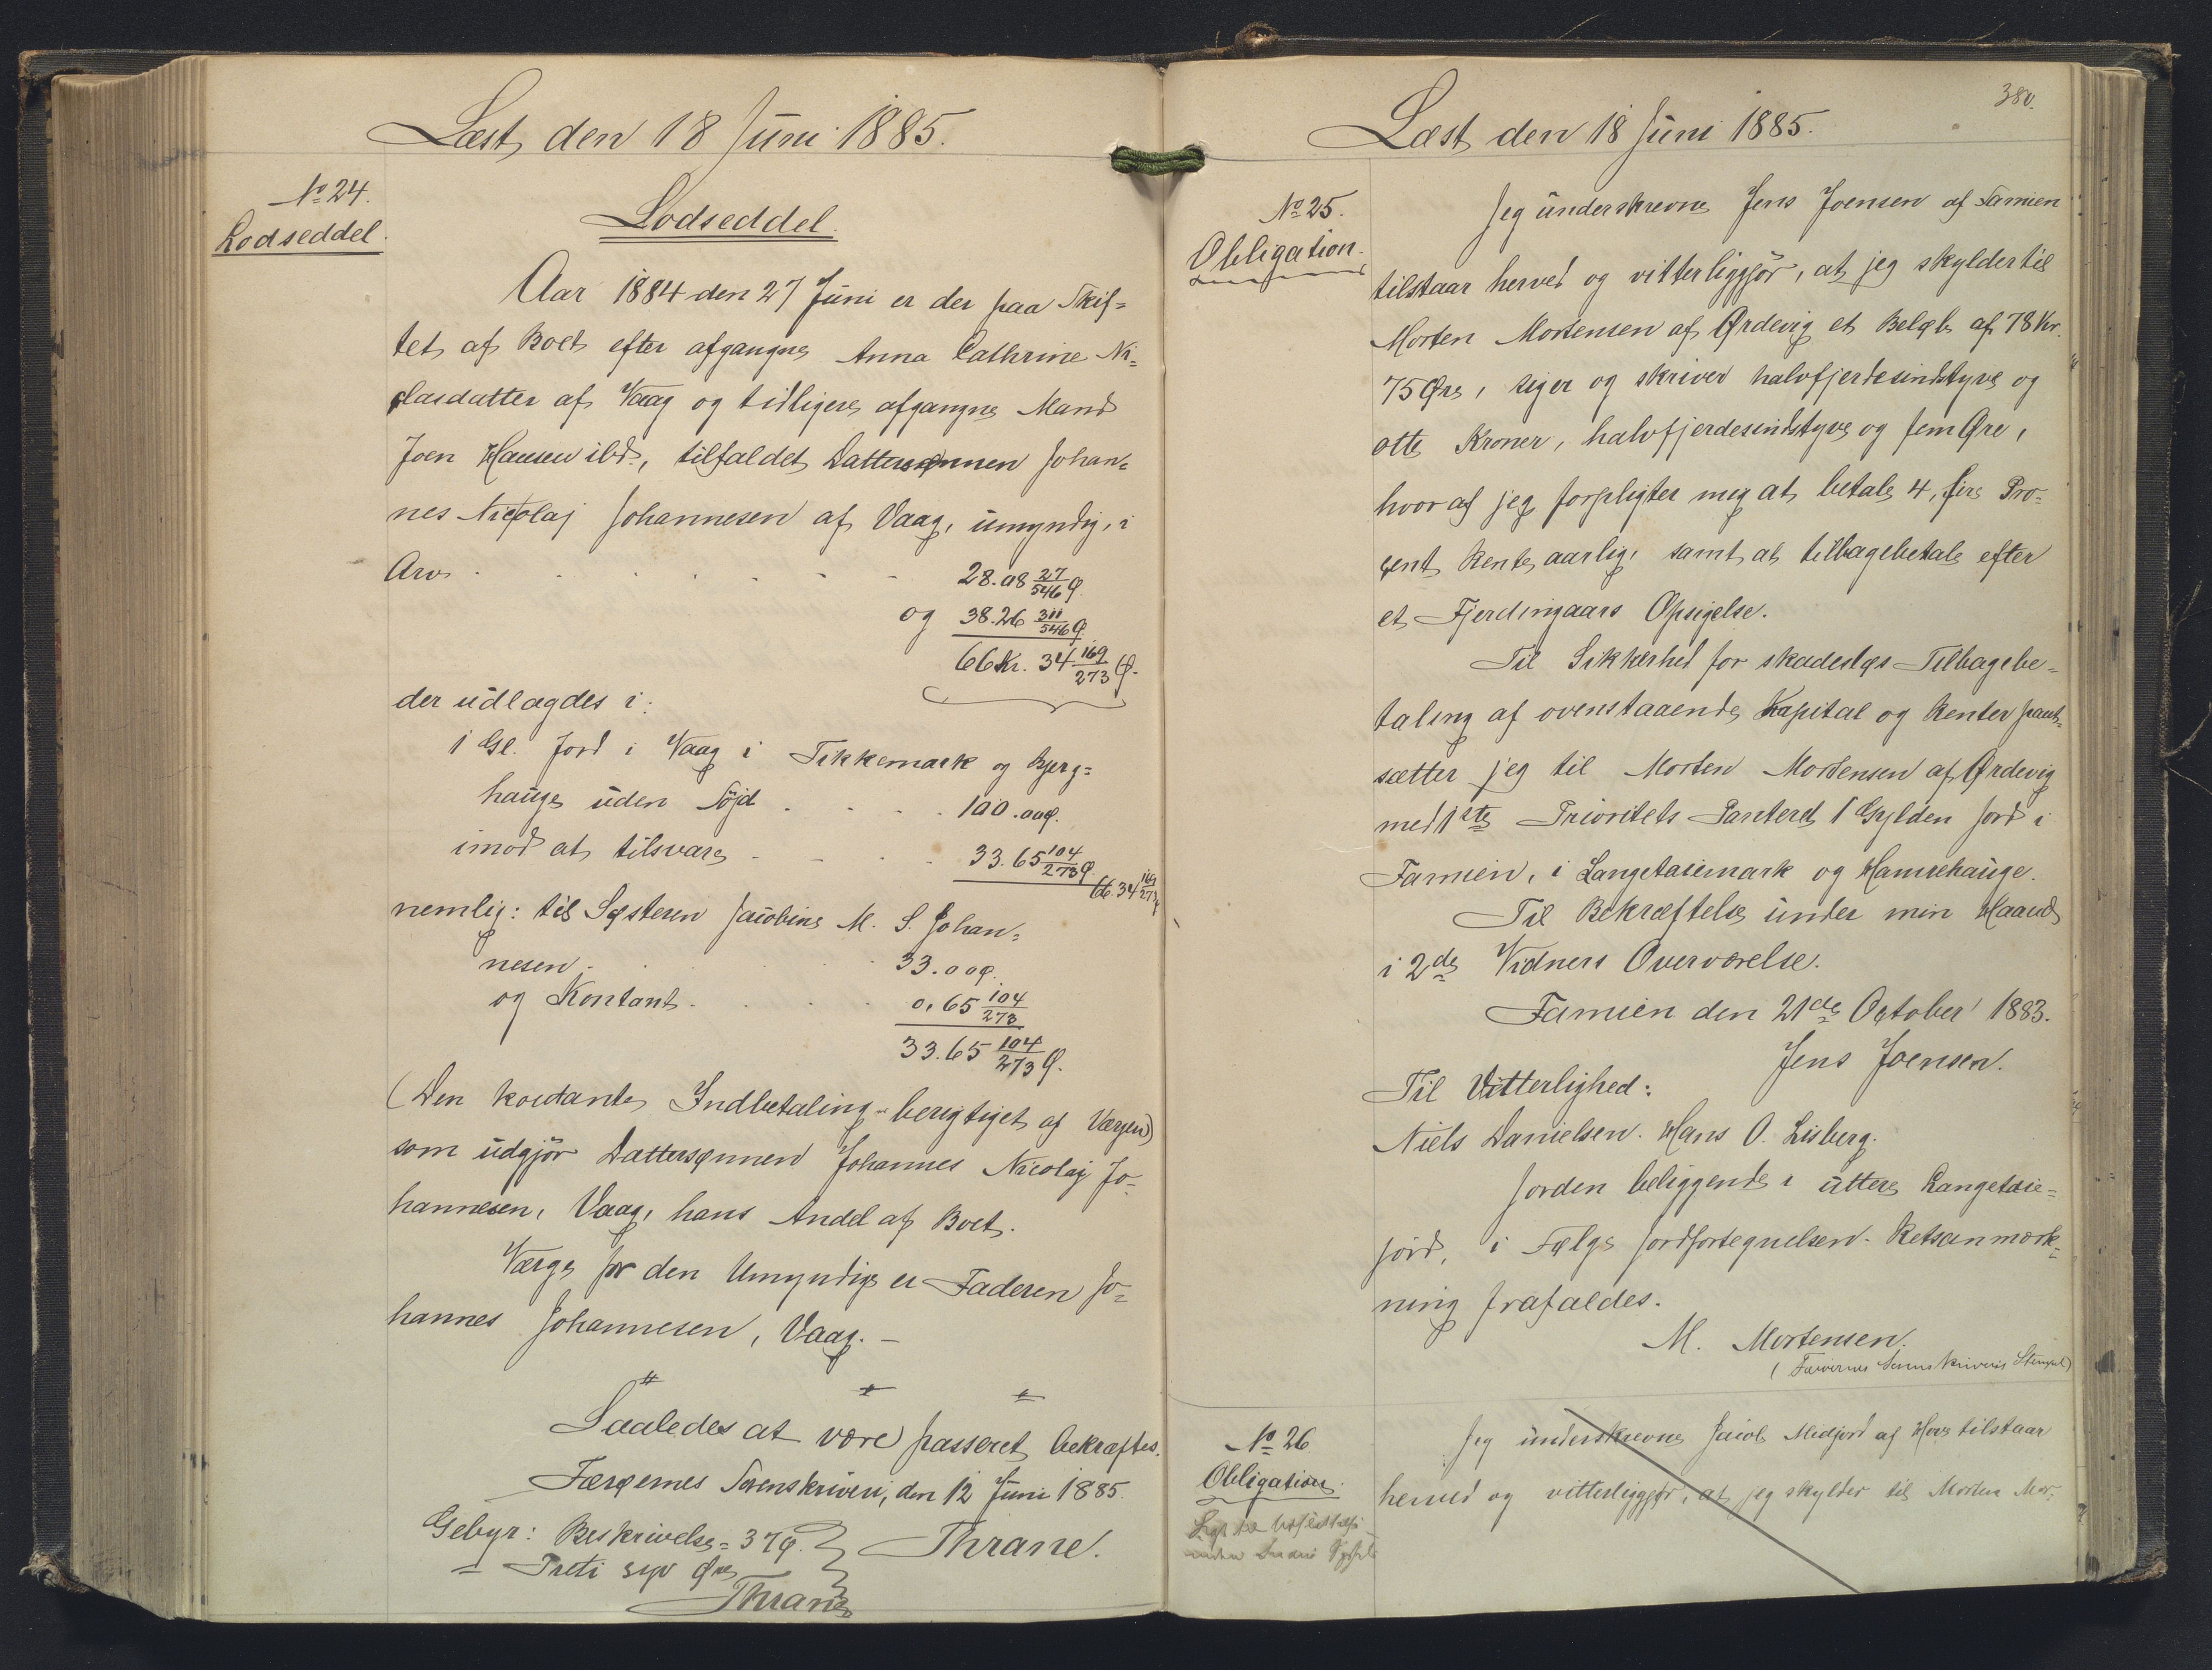 Læst den 18 Juni 1885.
No 24.
Lodseddel.
Lodseddel.
Aar 1884 den 27 Juni er der paa Skif-
tet af Boet efter afgangne Anna Cathrine Ni-
clasdatter af Vaag og tidligere afgangne Mand
Joen Hansen ibd., tilfaldet Dattersønnen Johan-
nes Nicolaj Johannesen af Vaag, umyndig, i
Arv . . . . . . 28.08 27/546 Ø.
og 38.26 311/546 Ø
66 Kr. 34 169/273 Ø.
der udlagdes i:
1 Gl. Jord i Vaag i Tikkemark og Bjerg-
hauge uden Föjd . . . . 100.00Ø.
imod at tilsvare . . . . 33.65 104/273 Ø.
66.34 169/273 Ø
nemlig: til Søsteren Jacobine M. S. Johan-
nesen . . . . 33.00Ø.
og Kontant . . . . 0,65 104/273
33.65 104/273 Ø.
(Den kontante Indbetaling berigtiget af Værgen)
som udgjör Dattersønnen Johannes Nicolaj Jo-
hannesen, Vaag, hans Andel af Boet.
Værge for den Umyndige er Faderen Jo-
hannes Johannesen, Vaag. –
Saaledes at være passeret bekræftes.
Færøernes Sorenskriveri, den 12 Juni 1885.
Gebyr: Beskrivelse = 37Ø. } Thrane.
= Treti syv Øre
Thrane
380.
Læst den 18 Juni 1885.
No 25.
Obligation.
Jeg underskrevne Jens Joensen af Famien
tilstaar herved og vitterliggjör, at jeg skylder til
Morten Mortensen af Ørdevig et Beløb af 78 Kr.
75 Øre, siger og skriver halvfjerdesindstyve og
otte Kroner, halvfjerdesindstyve og fem Øre,
hvoraf jeg forpligter mig at betale 4, fire Pro-
cent Rente aarlig, samt at tilbagebetale efter
et Fjerdingaars Opsigelse.
Til Sikkerhed for skadesløs Tilbagebe-
taling af ovenstaaende Kapital og Renter pant-
sætter jeg til Morten Mortensen af Ørdevig
med 1ste Prioritets Panteret 1 Gylden Jord i
Famien, i Langetasiemark og Hamrehauge.
Til Bekræftelse under min Haand
i 2de Vidners Overværelse.
Famien den 21de October 1883.
Jens Joensen.
Til Vitterlighed:
Niels Danielsen. Hans O. Lisberg.
Jorden beliggende i uttere Langetasie-
jord, i Følge Jordfortegnelsen. Retsanmærk-
ning frafaldes.
M. Mortensen.
(Færöernes Sorenskriveris Stempel)
No 26
Obligation.
Jeg underskrevne Jacob Midjord af Hove tilstaar
herved og vitterliggjør, at jeg skylder til Morten Mor-